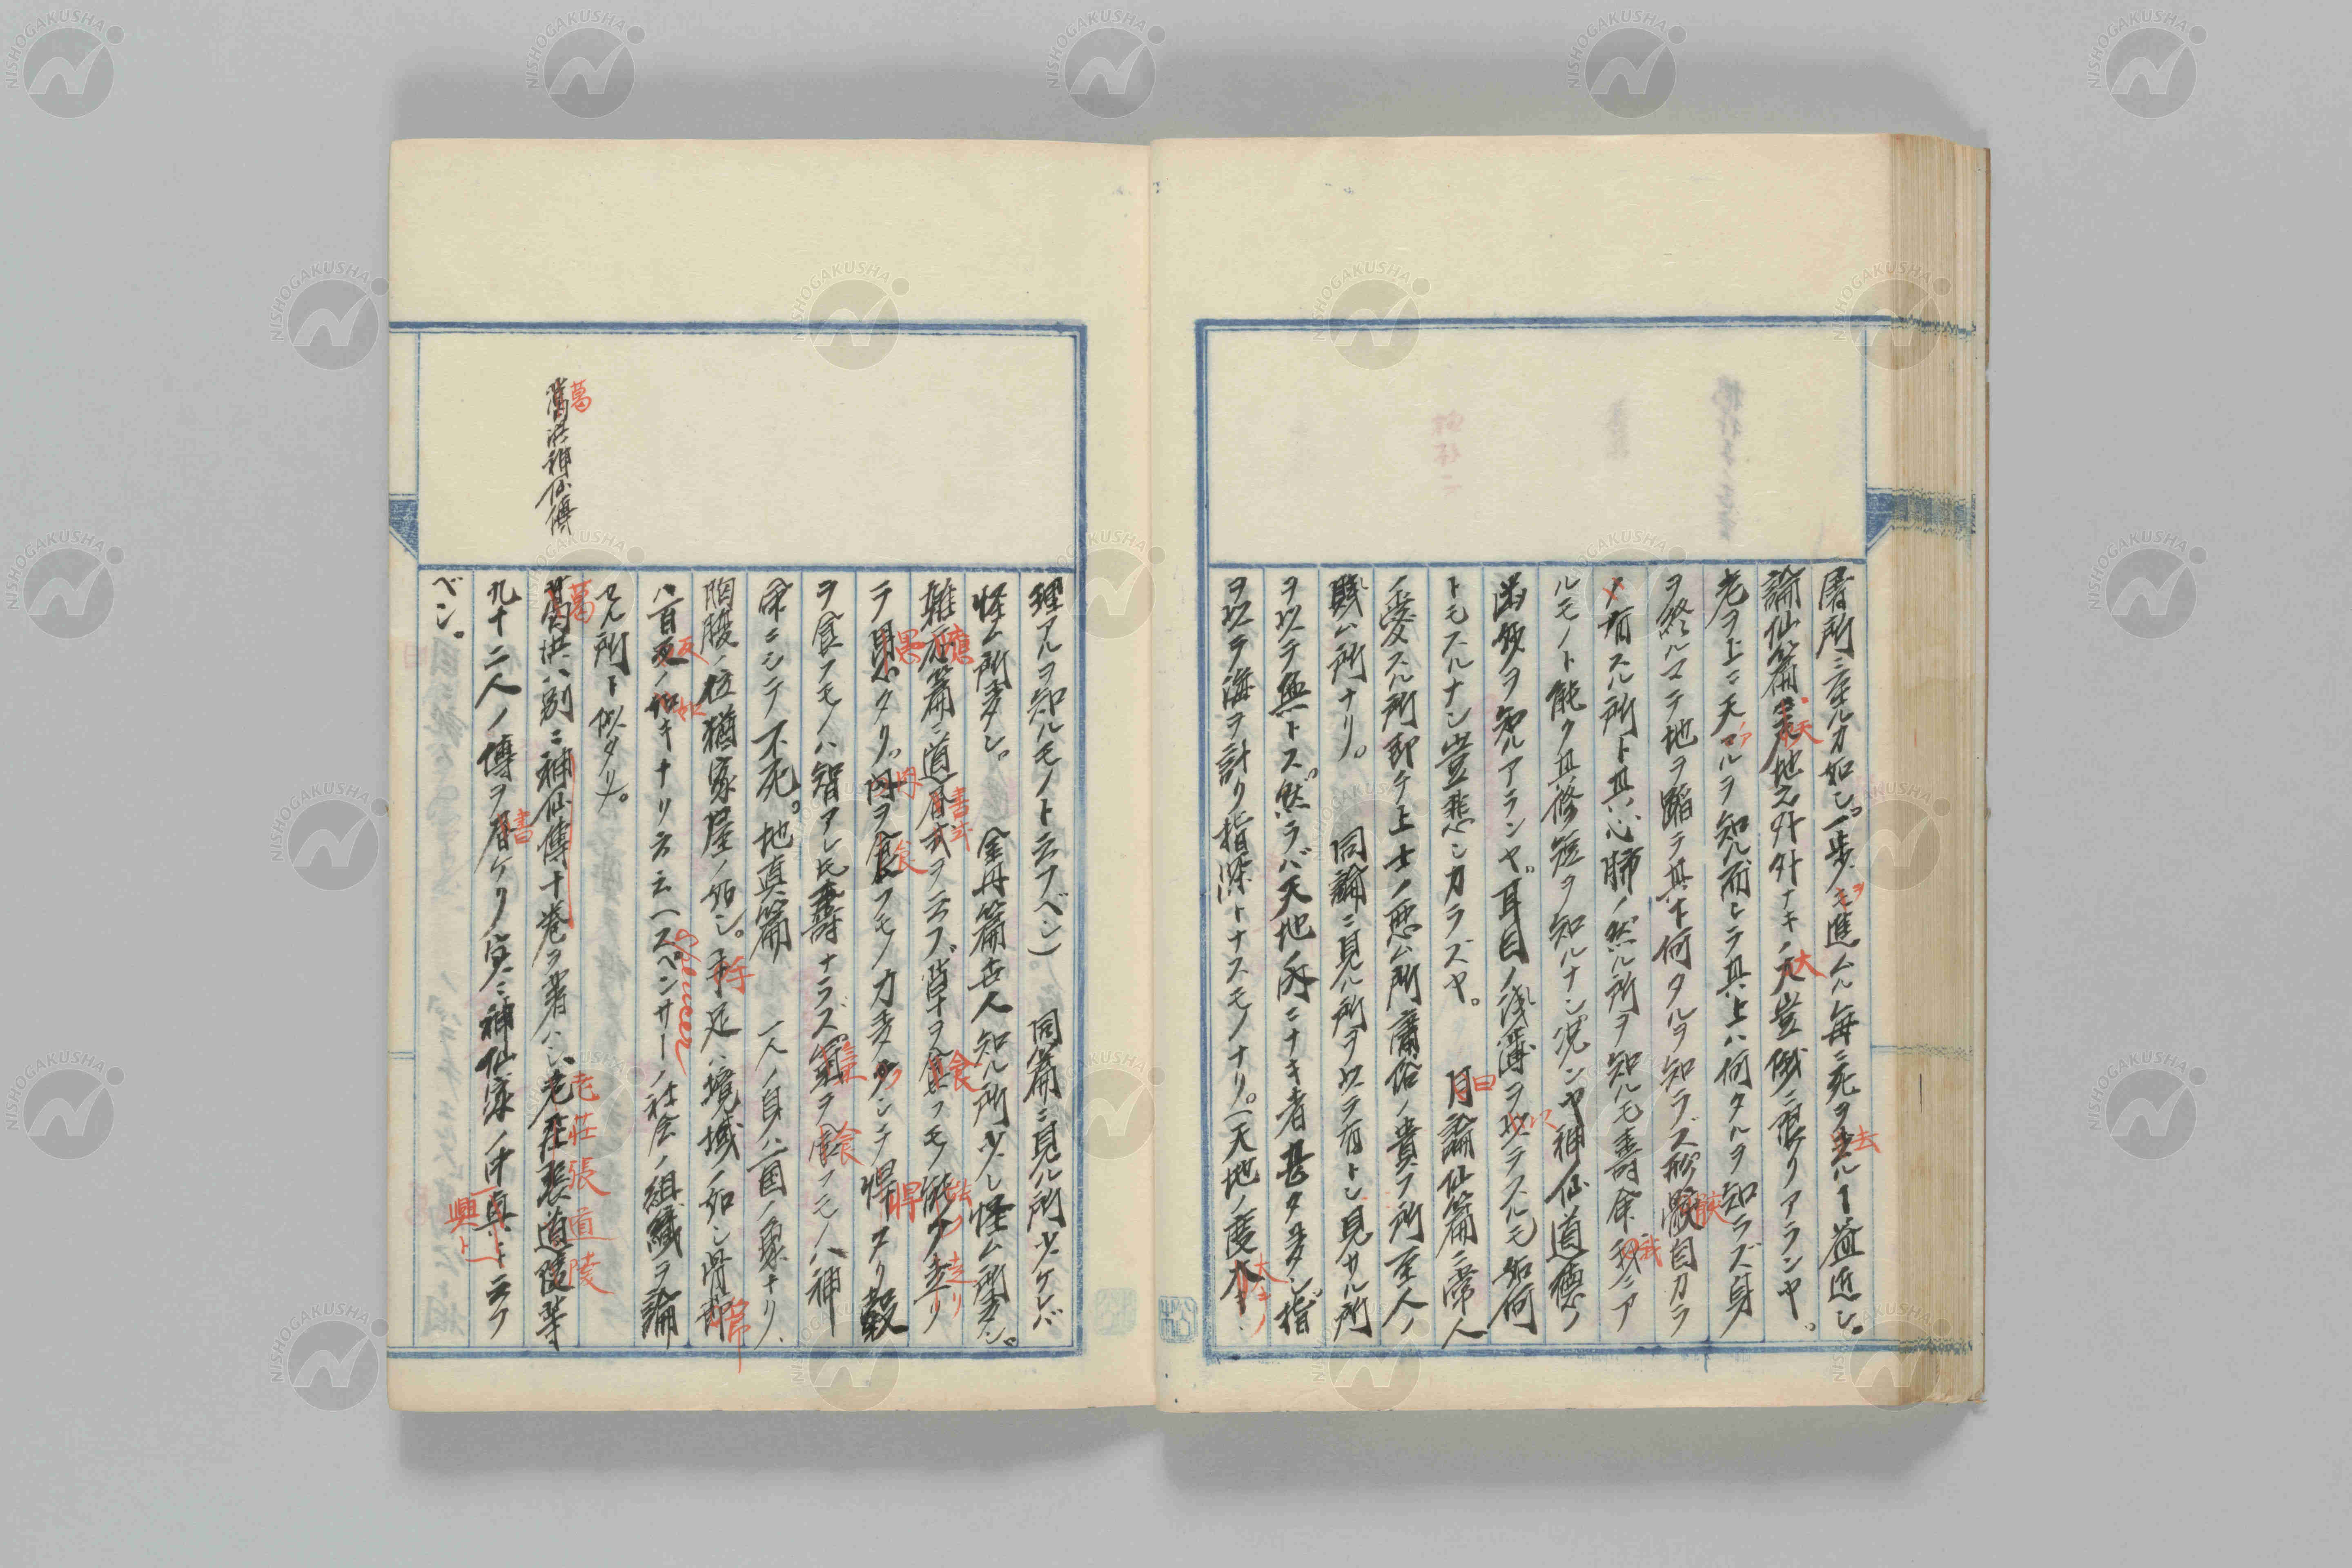 屠所ニ牽ルカ如シ。一歩ヲ進ムル毎ニ死ヲ去ルヿ益近シ。
論仙篇 天地之外外ナキノ大豈俄ニ限リアランヤ。
老ヲ上ニ天アルヲ知ル而シテ其上ハ何タルヲ知ラズ身
ヲ終ルマテ地ヲ蹈ラ其下何タルヲ知ラズ形骸自カラ
メ有スル所ト其心肺ノ然ル所ヲ知ルモ壽命我ニア
ルモノト能ク其修短ヲ知ルナシ況ンヤ神仙道徳ノ
幽妙ヲ知ルアランヤ。耳目ノ浅薄ヲ以テスルモ如何
トモスルナシ豈悲シカラズヤ。 曰論仙篇ニ常人
ノ愛スル所却テ上士ノ悪ム所庸俗ノ貴フ所至人ノ
賤ム所ナリ。 同論ニ見ル所ヲ以テ有トシ見サル所
ヲ以テ無トス。然ラバ天地ノ内ニナキ者甚タ多シ。指
ヲ以テ海ヲ計リ指深トナスモノナリ。(天地ノ度大キ
理アルヲ知ルモノト云フベシ) 同篇ニ見ル所少ケレバ
怪ム所多シ。 金丹篇世人知ル所少シ怪ム所多シ。
雜應篇ニ道書或ヲ云フ草ヲ食フモノ能ク走リ
テ愚ナリ。肉ヲ食フモノ力多クシテ悍ナリ穀
ヲ食フモノハ智アレ𪜈壽ナラズ。氣ヲ食フモノハ神
命ニシテ不死。地真篇 一人ノ身ハ一国ノ象ナリ、
胸腹ノ位猶家屋ノ如シ。手足ハ境域ノ如シ骨節
ハ百官ノ如キナリ云云(スペンサーノ社会ノ組織ヲ論
Spencer
セル所ト似タリ)。
葛洪神仙傳
葛洪ハ別ニ神仙傳十巻ヲ著ハシ、老荘張道陵等
老荘張道陵
九十二人ノ傳ヲ書ケリ。実ニ神仙家ノ中真ト云フ
ベシ。